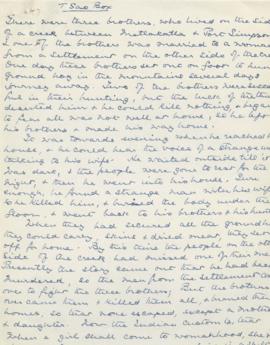 T'Sao Box
There were three brothers, who lived on the side
of a creek between Metlakatla & Port Simpson
one of the brothers was married to a woman
from a settlement on the other side of the creek
One day these brothers set out on foot to hunt
ground hog in the mountains several days
journey away. Two of the brothers were success
ful in their hunting, but the luck of the third
deserted him & he could kill nothing, & began
to fear all was not well at home, so he left
his brothers & made his way home.
It was towards evening when he reached his
house, & he could hear the voice of a strange man
talking to his wife. He waited outside till it
was dark, & the people were gone to rest for the
night, & then he went into his house. Sure
enough, he found a strange man with his wife
He killed him, & buried the body under the
floor, & went back to his brothers & his hunting
When they had secured all the ground hog
they could carry, skins & dried meat, they set
off for home. By this time the people on the other
side of the creek had missed one of their men
Presently the story came out that he had been
murdered, so the men from the settlement came
over to fight the three brothers. But the brothers
over came them & killed them all, & burned their
homes, so that none escaped, except a mother
& daughter. Now the Indian custom is, that
when a girl shall come to womanhood, she